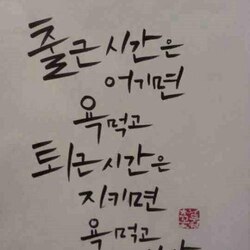 출근 시간은
어기면
욕먹고
퇴근 시간은
지키면
욕먹고